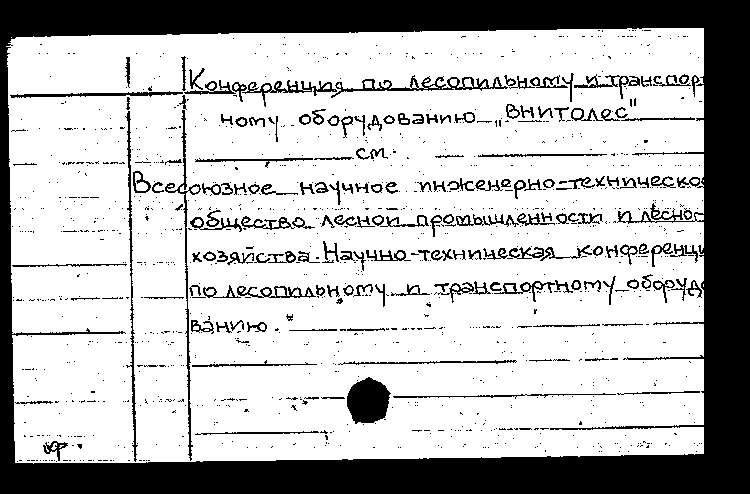 Конференция по лесопильному и транспорт
ному оборудованию „ВНИТОЛЕС"
см.
Всесоюзное научное инженерно-техническо
общество лесной промышленности и лесно-
хозяйства. Научно-техническая конференци
по лесопильному и транспортному оборудо
ванию.